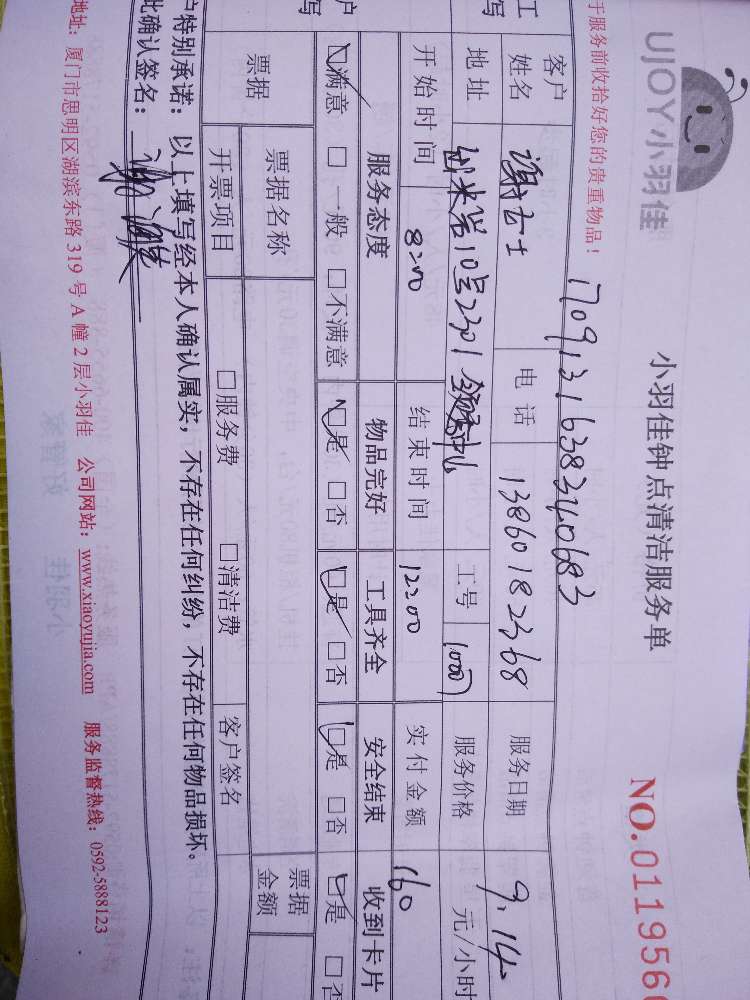 UJOY小羽佳
小羽佳钟点清洁服务单
NO.011956
于服务前收拾好您的贵重物品！
1709131638340683
客户姓名 谢女士 电话 13860182368 服务日期 9.14
地址 10号2301 工号 服务价格 元/小时
开始时间 8:00 结束时间 12:00 实付金额 160
服务态度 物品完好 工具齐全 安全结束 收到卡片
☑满意 □一般 □不满意 ☑是 □否 ☑是 □否 ☑是 □否 ☑是 □否
票据 票据名称 票据金额
开票项目 □服务费 □清洁费 客户签名
户特别承诺：以上填写经本人确认属实，不存在任何纠纷，不存在任何物品损坏。
此确认签名：
地址：厦门市思明区湖滨东路 319 号 A 幢 2 层小羽佳 公司网站：www.xiaoyujia.com 服务监督热线：0592-5888123